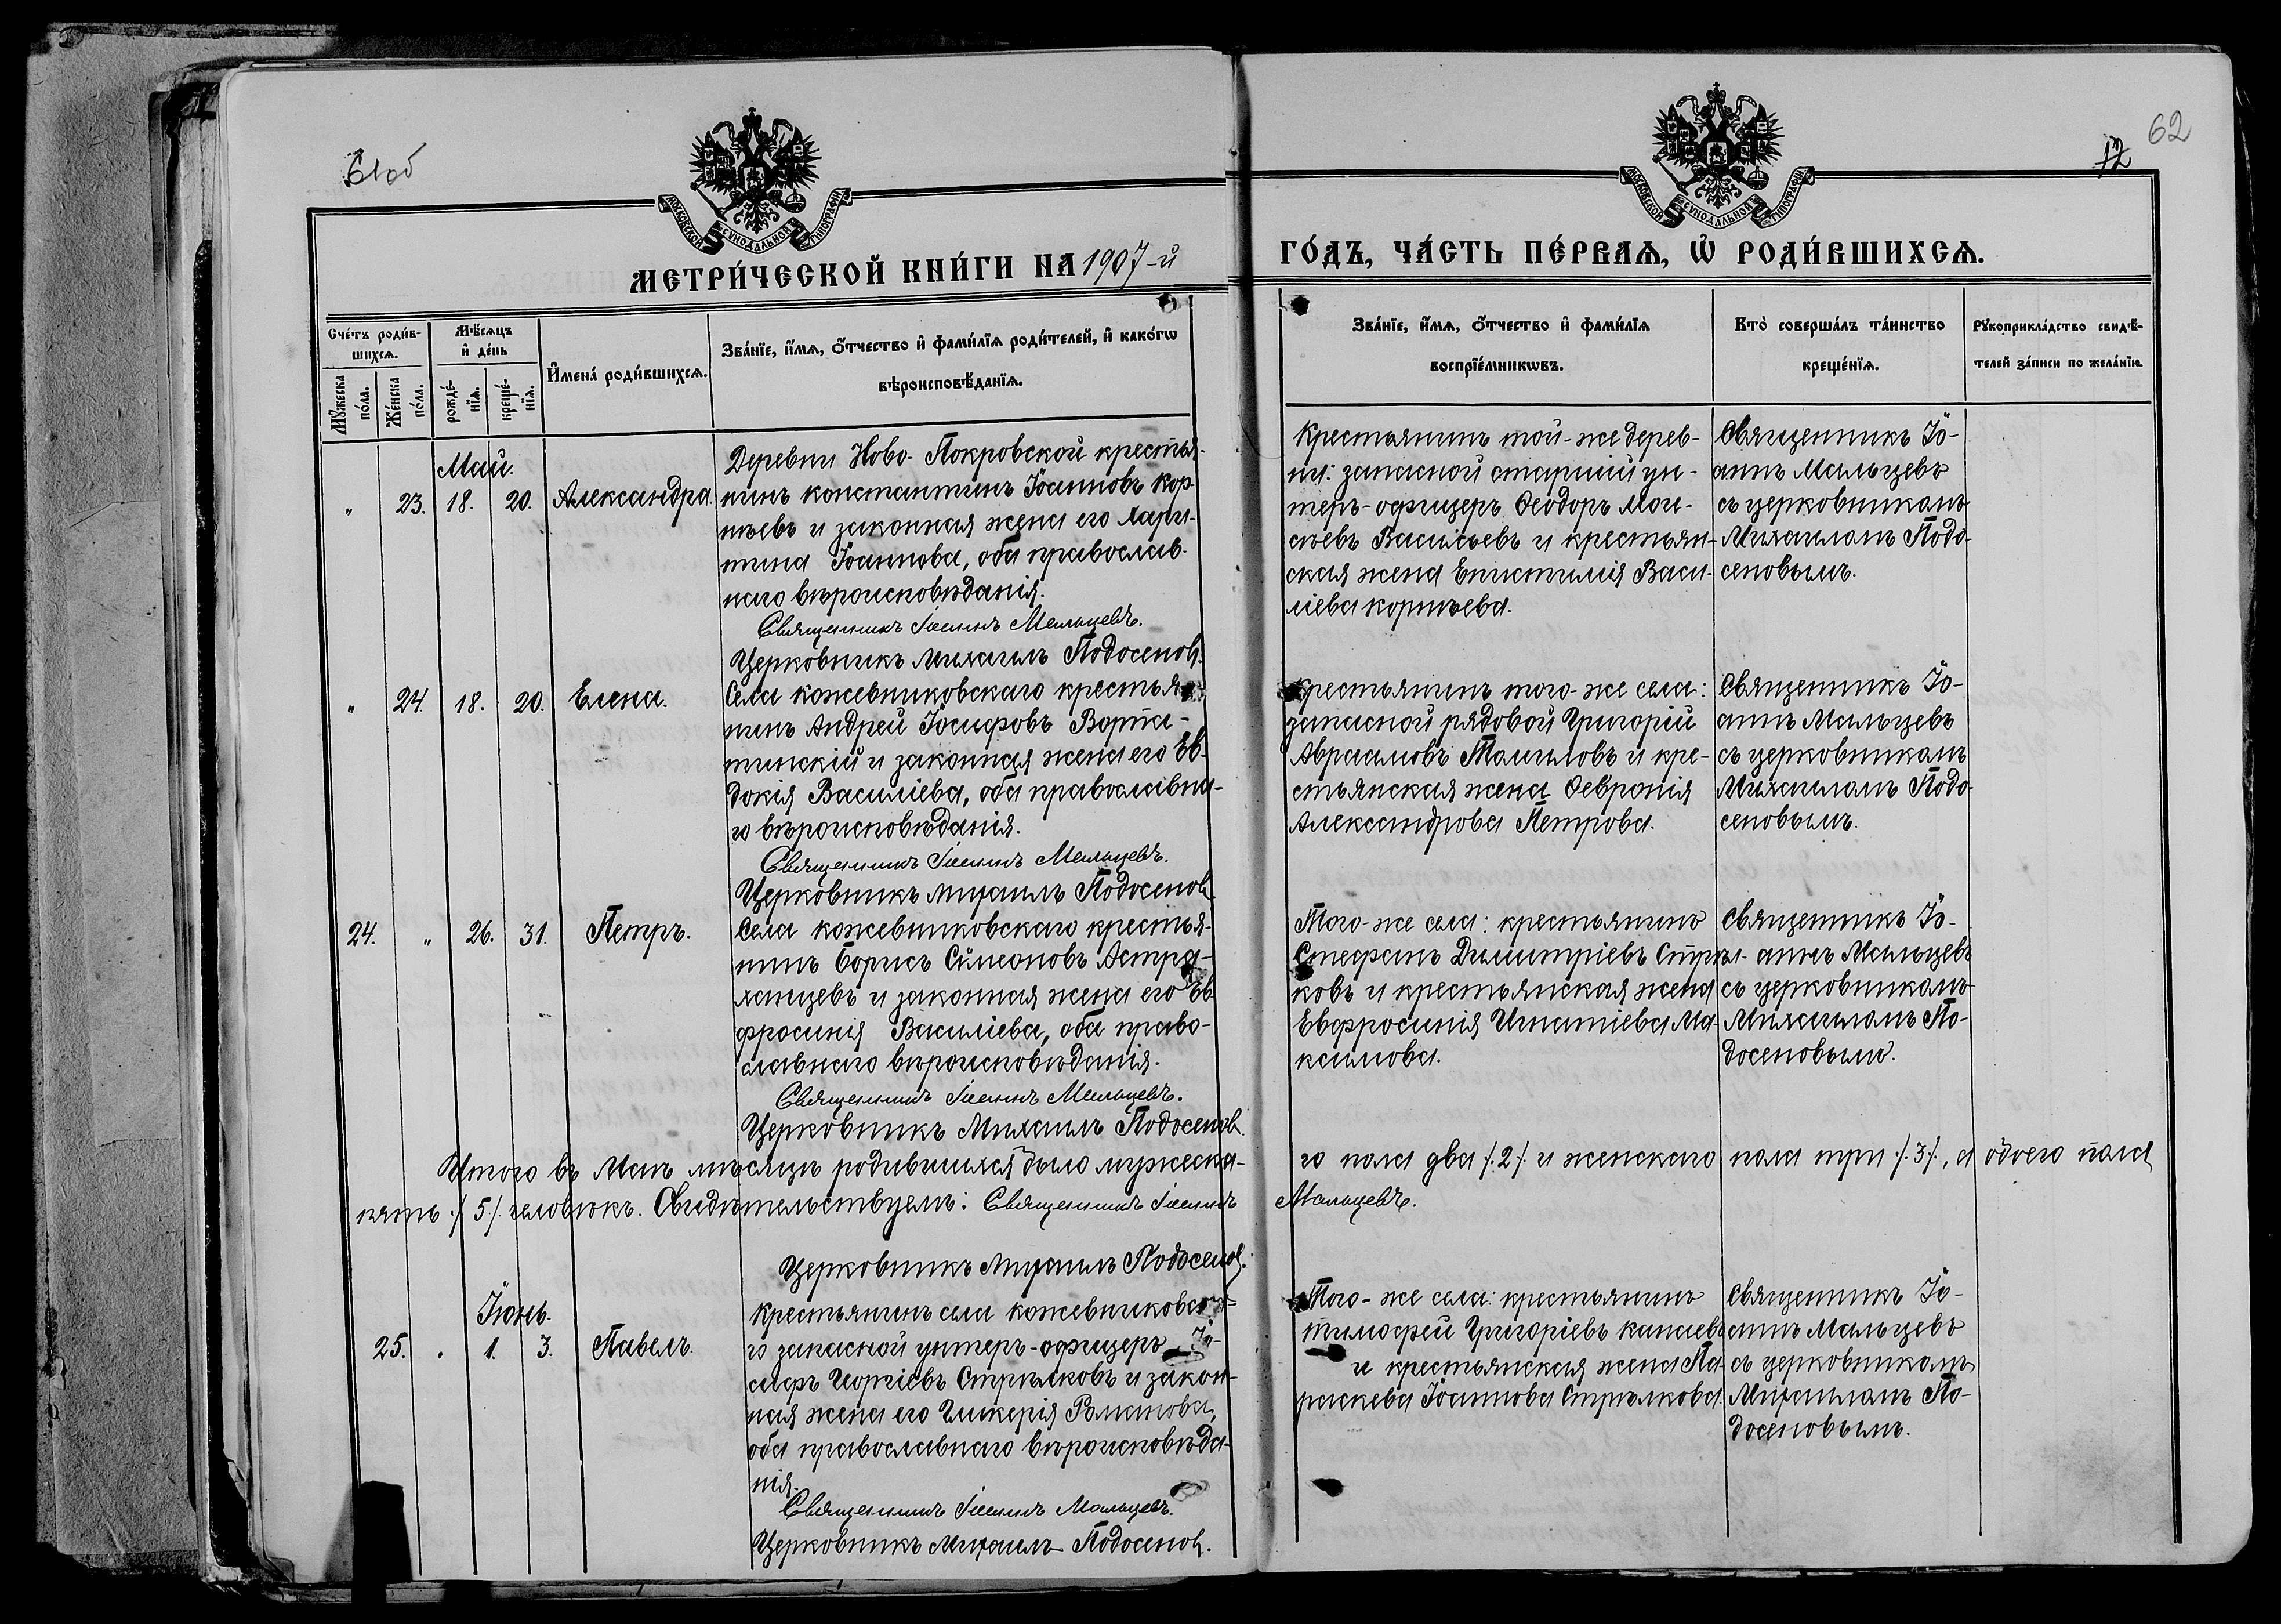 61об
62
12
МОСКОВСКОЙ СѴНОДАЛЬНОЙ ТИПОГРАФІИ
МОСКОВСКОЙ СѴНОДАЛЬНОЙ ТИПОГРАФІИ
МЕТРИ́ЧЕСКОЙ КНИ́ГИ НА 1907-й
ГО́ДЪ, ЧА́СТЬ ПЕ́РВАѦ, Ѽ РОДИ́ВШИХСѦ.
Сче́тъ роди́в-
шихсѧ.
Мꙋ́жеска
по́ла.
Же́нска
по́ла.
Мѣ́сѧцъ
и҆ де́нь
рожде́-
нїѧ.
креще́-
нїѧ.
И҆мена̀ роди́вшихсѧ.
Зва́нїе, и҆́мѧ, ѻ҆́тчество и҆ фами́лїѧ роди́телей, и҆ како́гѡ
вѣроисповѣ́данїѧ.
Зва́нїе, и҆́мѧ, ѻ҆́тчество и҆ фами́лїѧ
воспрїе́мникѡвъ.
Кто̀ соверша́лъ та́инство
креще́нїѧ.
Рꙋкоприкла́дство свидѣ́-
телей за́писи по жела́нїю.
Май.
" 23. 18. 20. Александра.
Деревни Ново-Покровской крестья-
нинъ Константинъ Іоанновъ Кор-
нѣевъ и законная жена его Хари-
тина Іоаннова, оба православ-
наго вѣроисповѣданія.
Священникъ Іоаннъ Мальцевъ.
Церковникъ Михаилъ Подосенов.
Крестьянинъ той-же дерев-
ни: запасной старшій ун-
теръ-офицеръ Ѳеодоръ Мои-
сѣевъ Васильевъ и крестьян-
ская жена Епистимія Васи-
ліева Корнѣева.
Священникъ Іо-
аннъ Мальцевъ
съ церковникомъ
Михаиломъ Подо-
сеновымъ.
" 24. 18. 20. Елена.
Села Кожевниковскаго крестья-
нинъ Андрей Іосифовъ Ворта-
тинскій и законная жена его Ев-
докія Василіева, оба православна-
го вѣроисповѣданія.
Священникъ Іоаннъ Мальцевъ.
Церковникъ Михаилъ Подосенов.
Крестьянинъ того-же села:
запасной рядовой Григорій
Авраамовъ Томиловъ и кре-
стьянская жена Ѳевронія
Александрова Петрова.
Священникъ Іо-
аннъ Мальцевъ
съ церковникомъ
Михаиломъ Подо-
сеновымъ.
24. " 26. 31. Петръ.
Села Кожевниковскаго крестья-
нинъ Борисъ Симеоновъ Астра-
ханцевъ и законная жена его Ев-
фросинія Василіева, оба право-
славнаго вѣроисповѣданія.
Священникъ Іоаннъ Мальцевъ.
Церковникъ Михаилъ Подосенов.
Того-же села: крестьянинъ
Стефанъ Димитріевъ Стрѣл-
ковъ и крестьянская жена
Евфросинія Игнатіева Ма-
ксимова.
Священникъ Іо-
аннъ Мальцевъ
съ церковникомъ
Михаиломъ По-
досеновымъ.
Итого въ Маѣ мѣсяцѣ родившихся было мужеска-
го пола два /.2./ и женскаго пола три /.3./, а обоего пола
пять /.5./ человѣкъ. Свидѣтельствуемъ: Священникъ Іоаннъ
Мальцевъ.
Церковникъ Михаилъ Подосенов.
Іюнь.
25. " 1. 3. Павелъ.
Крестьянинъ села Кожевниковска-
го запасной унтеръ-офицеръ Іо-
сифъ Георгіевъ Стрѣлковъ и закон-
ная жена его Гликерія Романова,
оба православнаго вѣроисповѣда-
нія.
Священникъ Іоаннъ Мальцевъ.
Церковникъ Михаилъ Подосенов.
Того-же села: крестьянинъ
Тимофей Григоріевъ Канаевъ
и крестьянская жена Па-
раскева Іоаннова Стрѣлкова.
Священникъ Іо-
аннъ Мальцевъ
съ церковникомъ
Михаиломъ По-
досеновымъ.